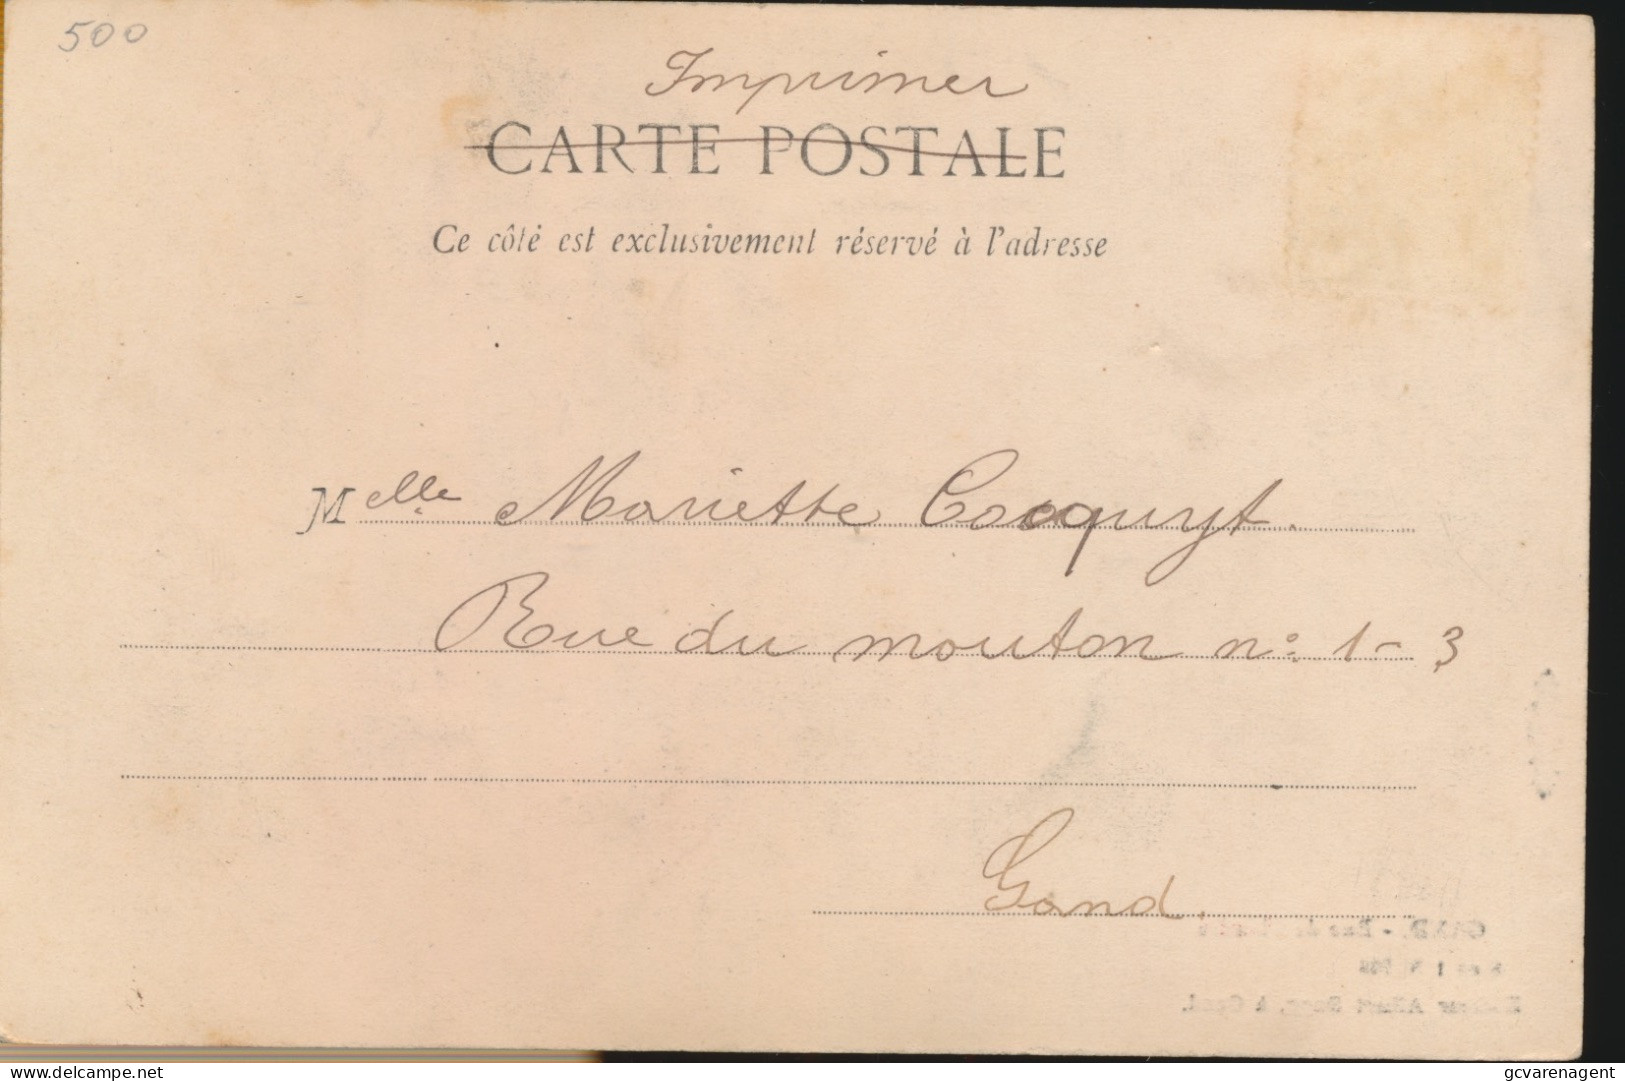 500
Imprimer
CARTE POSTALE
Ce côté est exclusivement réservé à l'adresse
Melle Mariette Cocquyt.
Rue du mouton n: 1-3
Gand.
delcampe.net
gcvarenagent